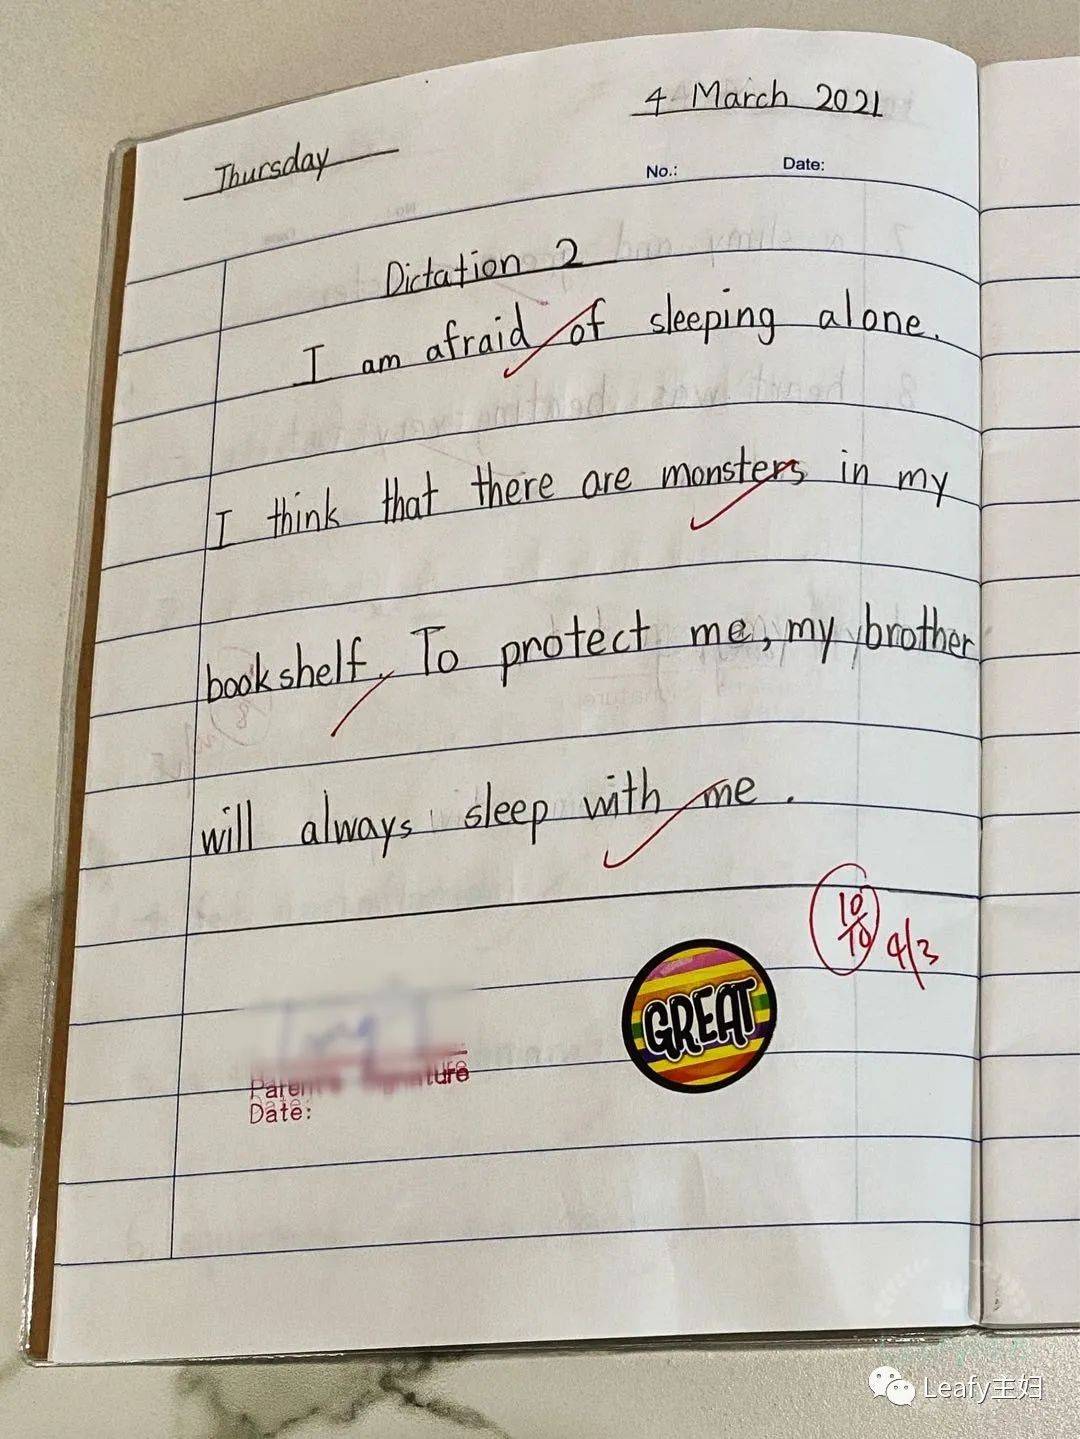 4 March 2021
Thursday
No.: Date:
Dictation 2
I am afraid of sleeping alone.
I think that there are monsters in my
bookshelf. To protect me, my brother
will always sleep with me.
10/10 4/3
GREAT
Parent's Signature
Date:
Leafy主妇